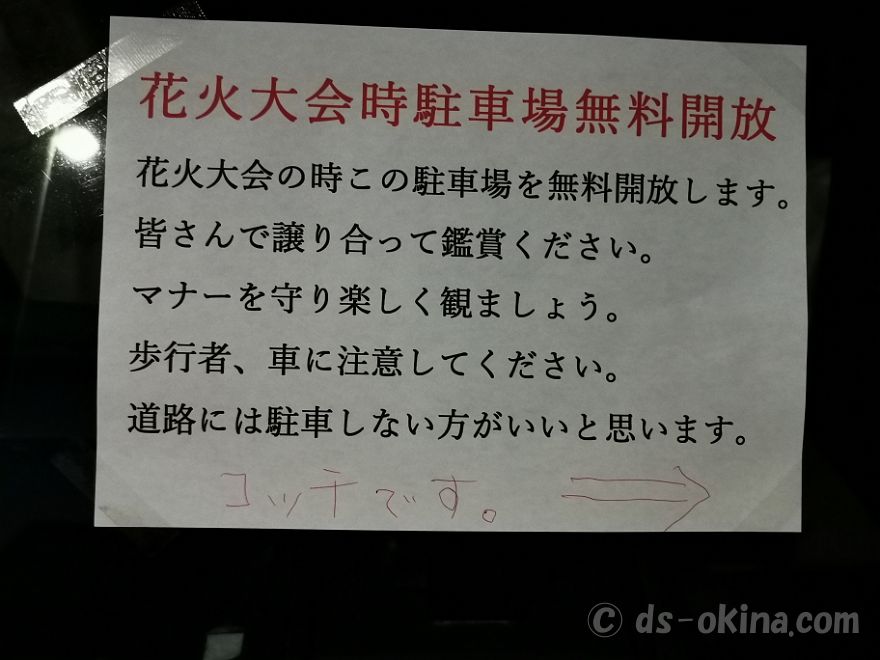 花火大会時駐車場無料開放
花火大会の時この駐車場を無料開放します。
皆さんで譲り合って鑑賞ください。
マナーを守り楽しく観ましょう。
歩行者、車に注意してください。
道路には駐車しない方がいいと思います。
コッチです。 ⇒
© ds-okina.com